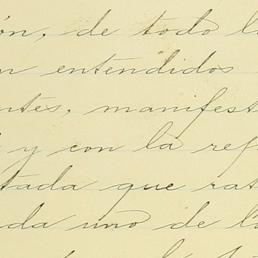 ón, de todo l
n entendidos
ntes, manifest
y con la rep
tada que rat
da uno de l